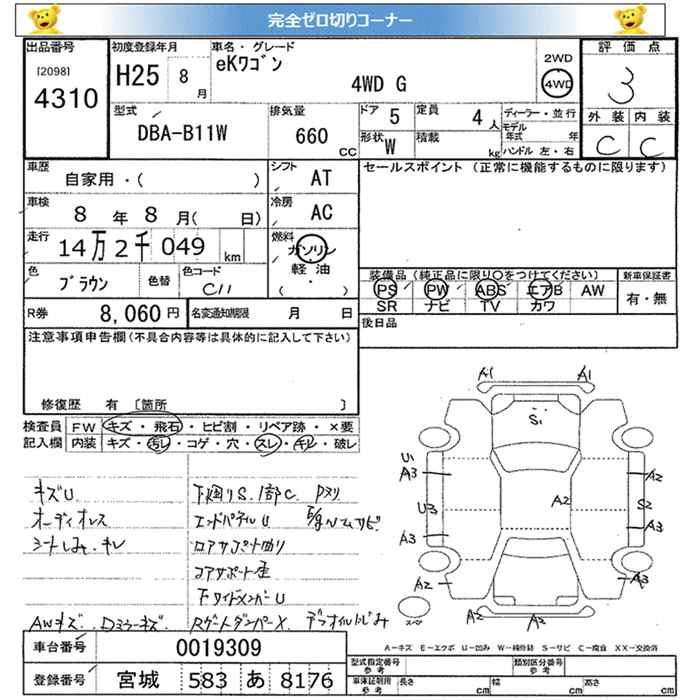 完全ゼロ切りコーナー
出品番号
[2098]
4310
初度登録年月
H25 8 月
車名・グレード
eKワゴン
4WD G
2WD
4WD
評価点
3
外装 内装
C C
型式
DBA-B11W
排気量
660 CC
ドア 5
定員 4 人
形状 W
積載 kg
ディーラー・並行
モデル年式 年
ハンドル 左・右
車歴
自家用・( )
シフト AT
車検
8 年 8 月( 日)
冷房 AC
走行
14万2千049 km
燃料 ガソリン
軽・油
( )
色
ブラウン
色替
色コード
C11
R券 8,060 円
名変通知期限 月 日
セールスポイント (正常に機能するものに限ります)
装備品 (純正品に限り○をつけてください)
PS PW ABS エアB AW
SR ナビ TV カワ
新車保証書
有・無
後日品
注意事項申告欄(不具合内容等は具体的に記入して下さい)
修復歴 有 〔箇所 〕
検査員記入欄
FW キズ・飛石・ヒビ割・リペア跡・×要
内装 キズ・汚レ・コゲ・穴・スレ・キレ・破レ
キズU
オーディオレス
シートしみ・キレ
AWキズ・Dミラーキズ
下廻りS.1部C Pヌリ
エンドパネルU
コアサポート曲り
コアサポート歪
下サイドメンバーU
RゲートダンパーX デフオイルにじみ
A1 A1
S1
U1
A3 A2
A2 S2
U3
A3 A3
A2 A3
A2 A2
スペア
A－キズ E－エクボ U－凹み W－補修跡 S－サビ C－腐食 XX－交換済
車台番号 0019309
登録番号 宮城 583 あ 8176
型式指定番号 参考
類別区分番号 参考
車体証明用 参考
長さ cm 幅 cm 高さ cm